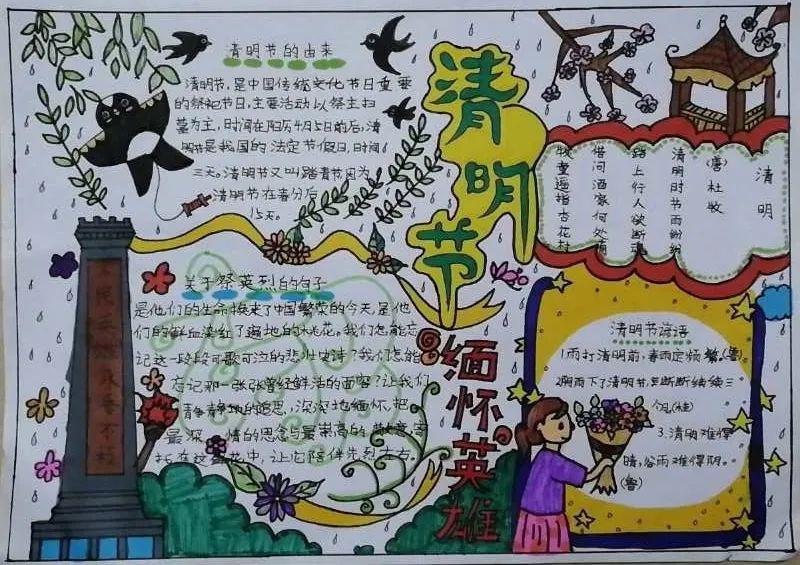 清明节的由来
清明节,是中国传统文化节日重要
的祭祀节日,主要活动以祭主扫
墓为主,时间在阳历4月5日前后,清
明节是我国的法定节假日,时间
三天。清明节又叫踏青节,因为
清明节在春分后
15天。
清明节
缅怀英雄
清明
(唐)杜牧
清明时节雨纷纷
路上行人欲断魂
借问酒家何处有
牧童遥指杏花村
人民英雄永垂不朽
关于祭英烈的句子
是他们的生命换来了中国繁荣的今天,是他
们的鲜血染红了遍地的桃花。我们怎能忘
记这一段段可歌可泣的悲壮史诗?我们怎能
忘记那一张张曾经鲜活的面容?让我们
静静地追思,深深地缅怀,把
最深情的思念与最崇高的敬意寄
托在这鲜花中,让它陪伴先烈左右。
清明节谚语
1.雨打清明前,春雨定频繁(鲁)
2.阴雨下了清明节,断断续续三
个月(桂)
3.清明难得
晴,谷雨难得阴。
(鲁)